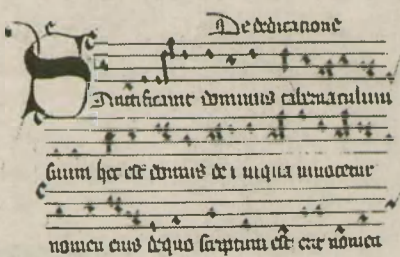 De dedicatione
Sanctificavit dominus tabernaculum
suum hec est domus dei in qua invocetur
nomen eius de quo scriptum est erit nomen